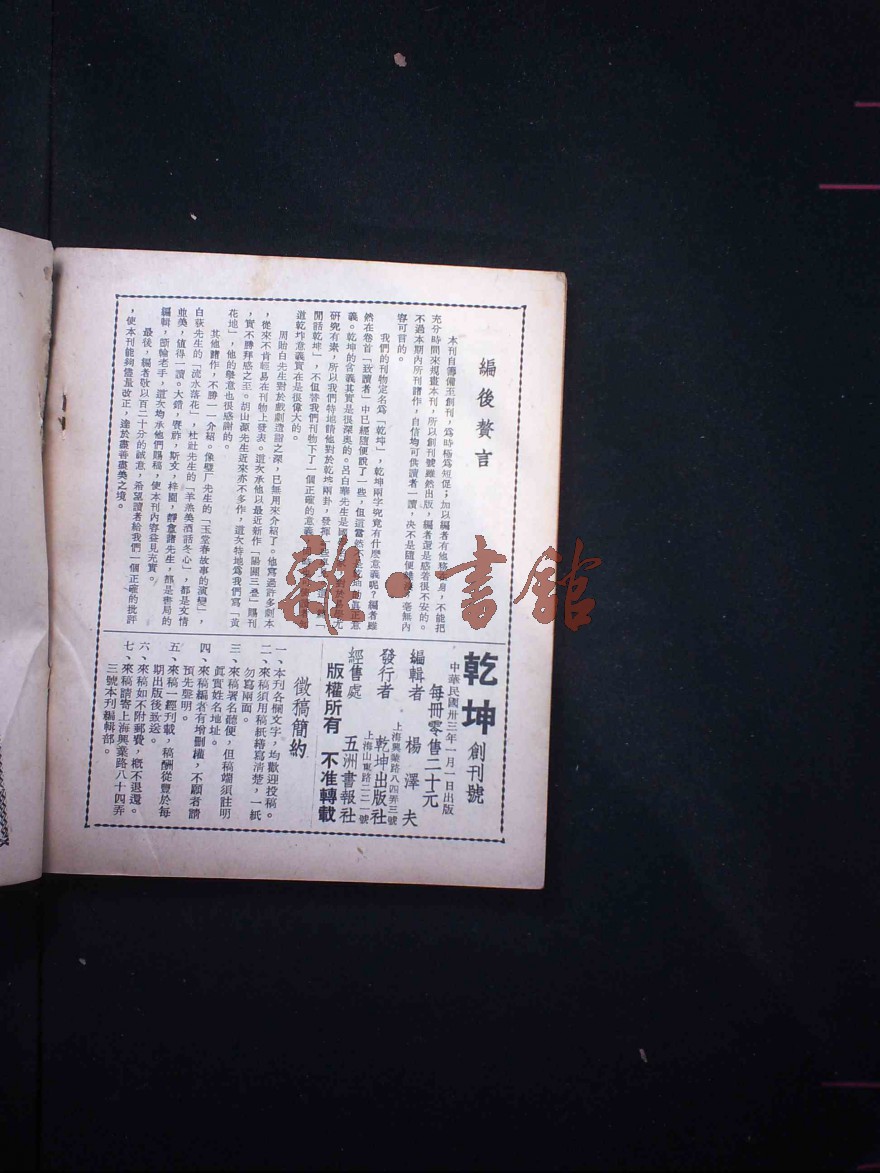 編後贅言
本刊自籌備至創刊，爲時極爲短促；加以編者有他務在身，不能把
充分時間來規畫本刊，所以創刊號雖然出版，編者還是感若很不安的。
不過本期內所刊諸作，自信均可供讀者一讀，决不是隨便雜湊，毫無內
容可目的。
我們的刊物定名爲「乾坤」，乾坤兩字究竟有什麽意義呢？編者雖
然在卷首「致讀者」中已經隨便說了一些，但這當然不是乾坤的眞正意
義。乾坤的含義其實是很深奥的。呂白華先生是國
研究有素，所以我們特地請他對於乾坤兩卦，發揮
閒話乾坤」，不但替我們刊物下了一個正確的意義
道乾坤意義實在是很偉大的。
周貽白先生對於戲劇造詣之深，已無用來介紹了。他寫過許多劇本
，從來不肯輕易在刊物上發表。這次承他以最近新作「陽關三叠」賜刊
，實不勝拜感之至。胡山源先生近來亦不多作，這次特地爲我們寫「黃
花地」，他的擧意也很感謝的。
其他諸作，不勝一一介紹。像璧厂先生的「玉堂春故事的演變」，
白荻先生的「流水落花」，杜社先生的「羊羔美酒話冬心」，都是文情
並美，值得一讀。大錯，褧祚，斯文，梓園，靜意諸先生，都是書局的
編輯，韻輪老手，這次均承他們賜稿，使本刊內容益見充實。
最後，編者敬以百二十分的誠意，希望讀者給我們一個正確的批評
，使本刊能夠儘量改正，達於盡善盡美之境。
乾坤 創刊號
中華民國卅三年一月一日出版
每冊零售二十元
編輯者 楊澤夫
上海興業路八四弄三號
發行者 乾坤出版社
上海山東路二二一號
經售處 五洲書報社
版權所有 不准轉載
徵稿簡約
一、本刊各欄文字，均歡迎投稿。
二、來稿須用稿紙繕寫淸楚，一紙
勿寫兩面。
三、來稿署名聽便，但稿端須註明
眞實姓名地址。
四、來稿編者有增刪權，不願者請
預先聲明。
五、來稿一經刊載，稿酬從豐於每
期出版後致送。
六、來稿如不附郵費，概不退還。
七、來稿請寄上海興業路八十四弄
三號本刊編輯部。
雜·書館